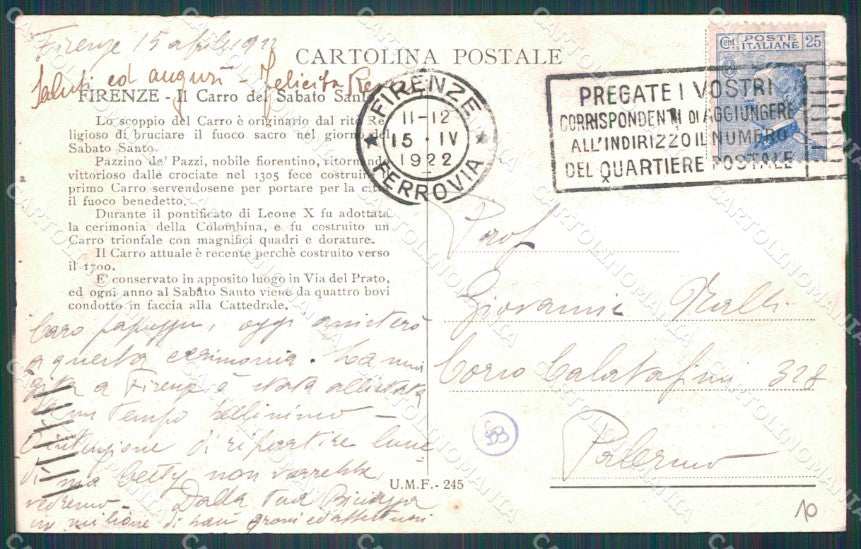 Firenze 15 aprile 1922
Saluti ed auguri - Felicita
CARTOLINA POSTALE
FIRENZE - Il Carro del Sabato Santo
Lo scoppio del Carro è originario dal rito Re-
ligioso di bruciare il fuoco sacro nel giorno del
Sabato Santo.
Pazzino de' Pazzi, nobile fiorentino, ritornando
vittorioso dalle crociate nel 1305 fece costruire
primo Carro servendosene per portare per la città
il fuoco benedetto.
Durante il pontificato di Leone X fu adottata
la cerimonia della Colombina, e fu costruito un
Carro trionfale con magnifici quadri e dorature.
Il Carro attuale è recente perchè costruito verso
il 1700.
E' conservato in apposito luogo in Via del Prato,
ed ogni anno al Sabato Santo viene da quattro bovi
condotto in faccia alla Cattedrale.
Caro oggi assisterò
a questa cerimonia. La mia
gita a Firenze è stata allietata
da un tempo bellissimo -
intenzione di ripartire lune
dì ma Betty non vorrebbe
vedremo - Dalla tua
un milione di baci grossi ed affettuosi
FIRENZE
11-12
15 · IV
1922
FERROVIA
PREGATE I VOSTRI
CORRISPONDENTI DI AGGIUNGERE
ALL'INDIRIZZO IL NUMERO
DEL QUARTIERE POSTALE
CENT. POSTE ITALIANE 25
Prof
Giovanni Nalli
Corso Calatafimi 328
Palermo
U.M.F. - 245
10
CARTOLINOMANIA